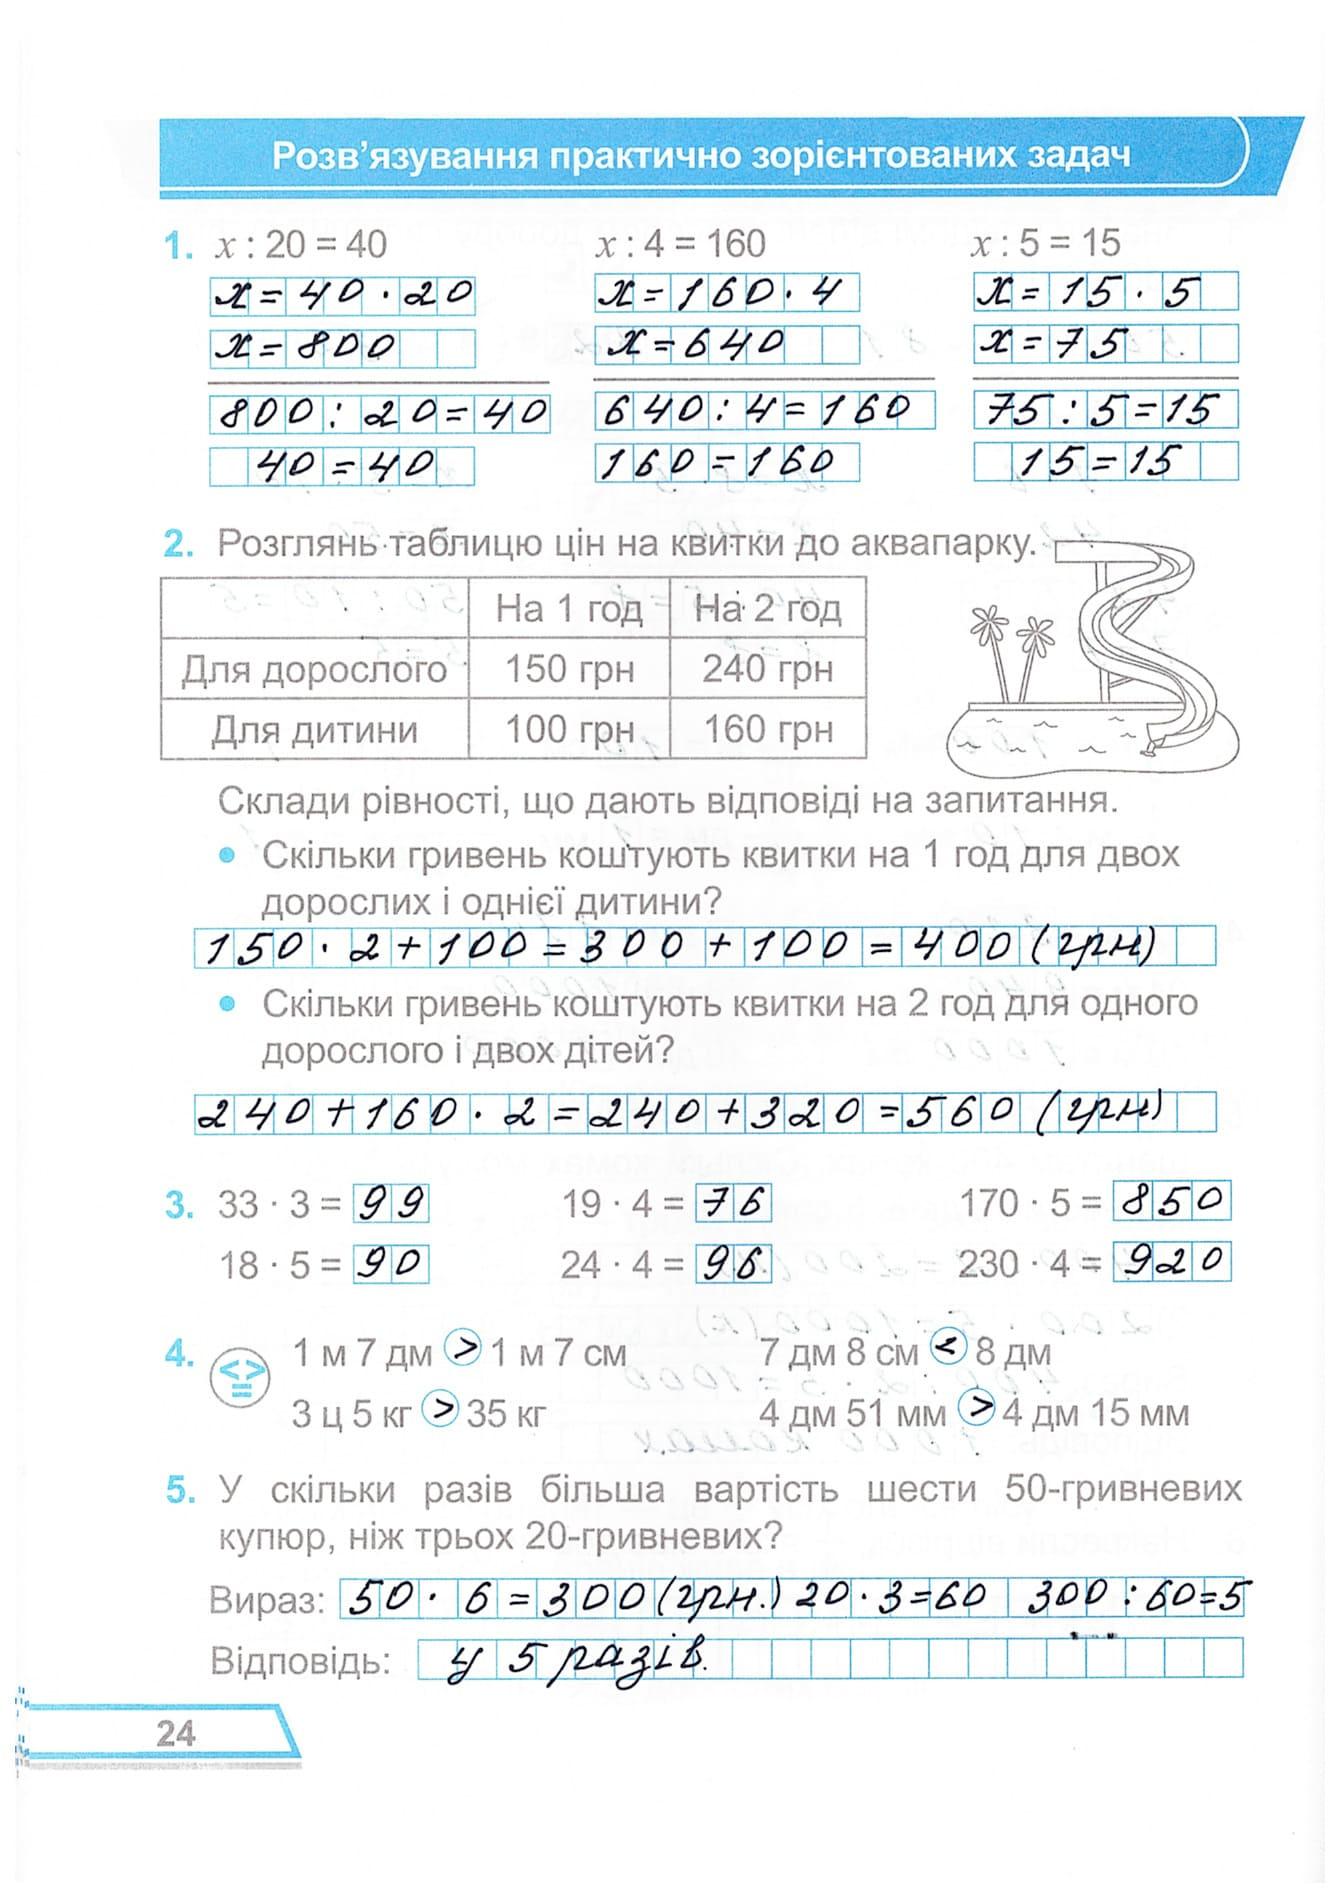 Розв’язування практично зорієнтованих задач
1. x : 20 = 40 x : 4 = 160 x : 5 = 15
x = 40 · 20 x = 160 · 4 x = 15 · 5
x = 800 x = 640 x = 75
800 : 20 = 40 640 : 4 = 160 75 : 5 = 15
40 = 40 160 = 160 15 = 15
2. Розглянь таблицю цін на квитки до аквапарку.
На 1 год На 2 год
Для дорослого 150 грн 240 грн
Для дитини 100 грн 160 грн
Склади рівності, що дають відповіді на запитання.
• Скільки гривень коштують квитки на 1 год для двох
дорослих і однієї дитини?
150 · 2 + 100 = 300 + 100 = 400 (грн)
• Скільки гривень коштують квитки на 2 год для одного
дорослого і двох дітей?
240 + 160 · 2 = 240 + 320 = 560 (грн)
3. 33 · 3 = 99 19 · 4 = 76 170 · 5 = 850
18 · 5 = 90 24 · 4 = 96 230 · 4 = 920
4. < > = 1 м 7 дм > 1 м 7 см 7 дм 8 см < 8 дм
3 ц 5 кг > 35 кг 4 дм 51 мм > 4 дм 15 мм
5. У скільки разів більша вартість шести 50-гривневих
купюр, ніж трьох 20-гривневих?
Вираз: 50 · 6 = 300 (грн.) 20 · 3 = 60 300 : 60 = 5
Відповідь: у 5 разів.
24